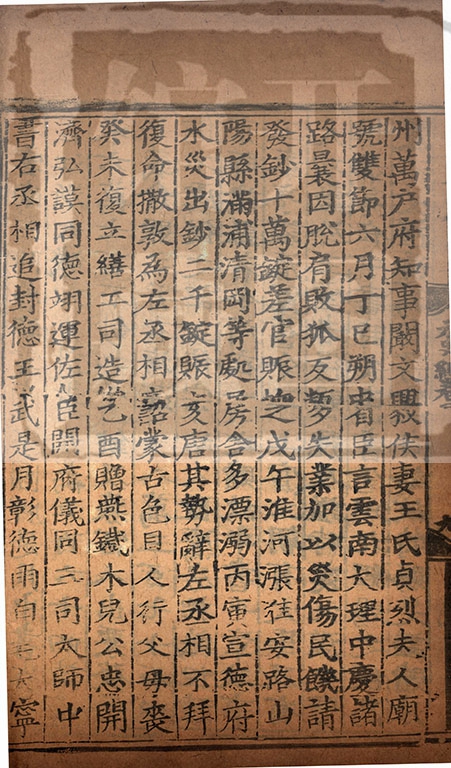 州萬戶府知事闞文興俠妻王氏貞烈夫人廟
號雙節六月丁巳朔中書省臣言雲南大理中慶諸
路曩因脫肩敗狐反夢失業加以災傷民饑請
發鈔十萬錠差官賑之戊午淮河漲淮安路山
陽縣滿浦清岡等處房舍多漂溺丙寅宣德府
水災出鈔二千錠賑之亥唐其勢辭左丞相不拜
復命撒敦爲左丞相詔蒙古色目人行父母喪
癸未復立繕工司造乞酉贈燕鐵木兒公忠開
濟弘謨同德翊運佐臣開府儀同三司太師中
書右丞相追封德王武是月彰德雨白毛大寧